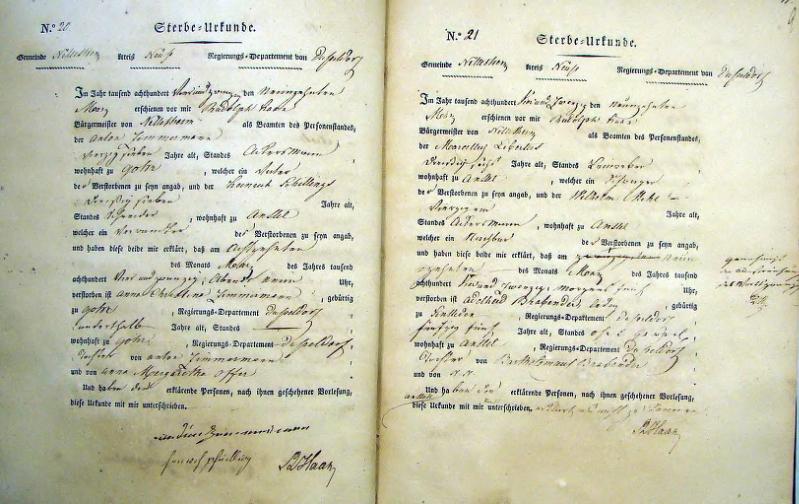 N.º 20 Sterbe-Urkunde.
Gemeinde Nettesheim Kreis Neuss Regierungs-Departement von Düsseldorf
Im Jahr tausend achthundert vier und zwanzig den neunzehnten
März erschienen vor mir Rudolph Haan
Bürgermeister von Nettesheim als Beamten des Personenstandes,
der Anton Zimmermann
vierzig sieben Jahre alt, Standes Ackersmann
wohnhaft zu Gohr, welcher ein Vater
des Verstorbenen zu seyn angab, und der Schillings
dreißig sieben Jahre alt,
Standes, wohnhaft zu Anstel
welcher ein Verwandter des Verstorbenen zu seyn angab,
und haben diese beide mir erklärt, daß am achtzehnten
des Monats März des Jahres tausend
achthundert vier und zwanzig Abends neun Uhr,
verstorben ist Anna Christina Zimmermann, gebürtig
zu Gohr, Regierungs-Departement Düsseldorf
Jahre alt, Standes
wohnhaft zu Gohr, Regierungs-Departement Düsseldorf
Tochter von Anton Zimmermann
und von Anna Margaretha Offer
Und haben die erklärende Personen, nach ihnen geschehener Vorlesung,
diese Urkunde mit mir unterschrieben.
Zimmermann
RHaan
N.º 21 Sterbe-Urkunde.
Gemeinde Nettesheim Kreis Neuss Regierungs-Departement von Düsseldorf
Im Jahr tausend achthundert vier und zwanzig den neunzehnten
März erschienen vor mir Rudolph Haan
Bürgermeister von Nettesheim als Beamten des Personenstandes,
der Marcellus Libertus
dreißig sechs Jahre alt, Standes Leinweber
wohnhaft zu Anstel, welcher ein Schwager
des Verstorbenen zu seyn angab, und der Wilhelm
Jahre alt,
Standes Ackersmann, wohnhaft zu Anstel
welcher ein Nachbar des Verstorbenen zu seyn angab,
und haben diese beide mir erklärt, daß am neun
zehnten des Monats März des Jahres tausend
achthundert vier und zwanzig morgens fünf Uhr,
verstorben ist Adelheid Brabender, gebürtig
zu, Regierungs-Departement Düsseldorf
fünfzig fünf Jahre alt, Standes
wohnhaft zu Anstel, Regierungs-Departement Düsseldorf
Tochter von Bartholomaus Brabender
und von N.N.
Und haben die erklärende Personen, nach ihnen geschehener Vorlesung,
diese Urkunde mit mir unterschrieben,
RHaan